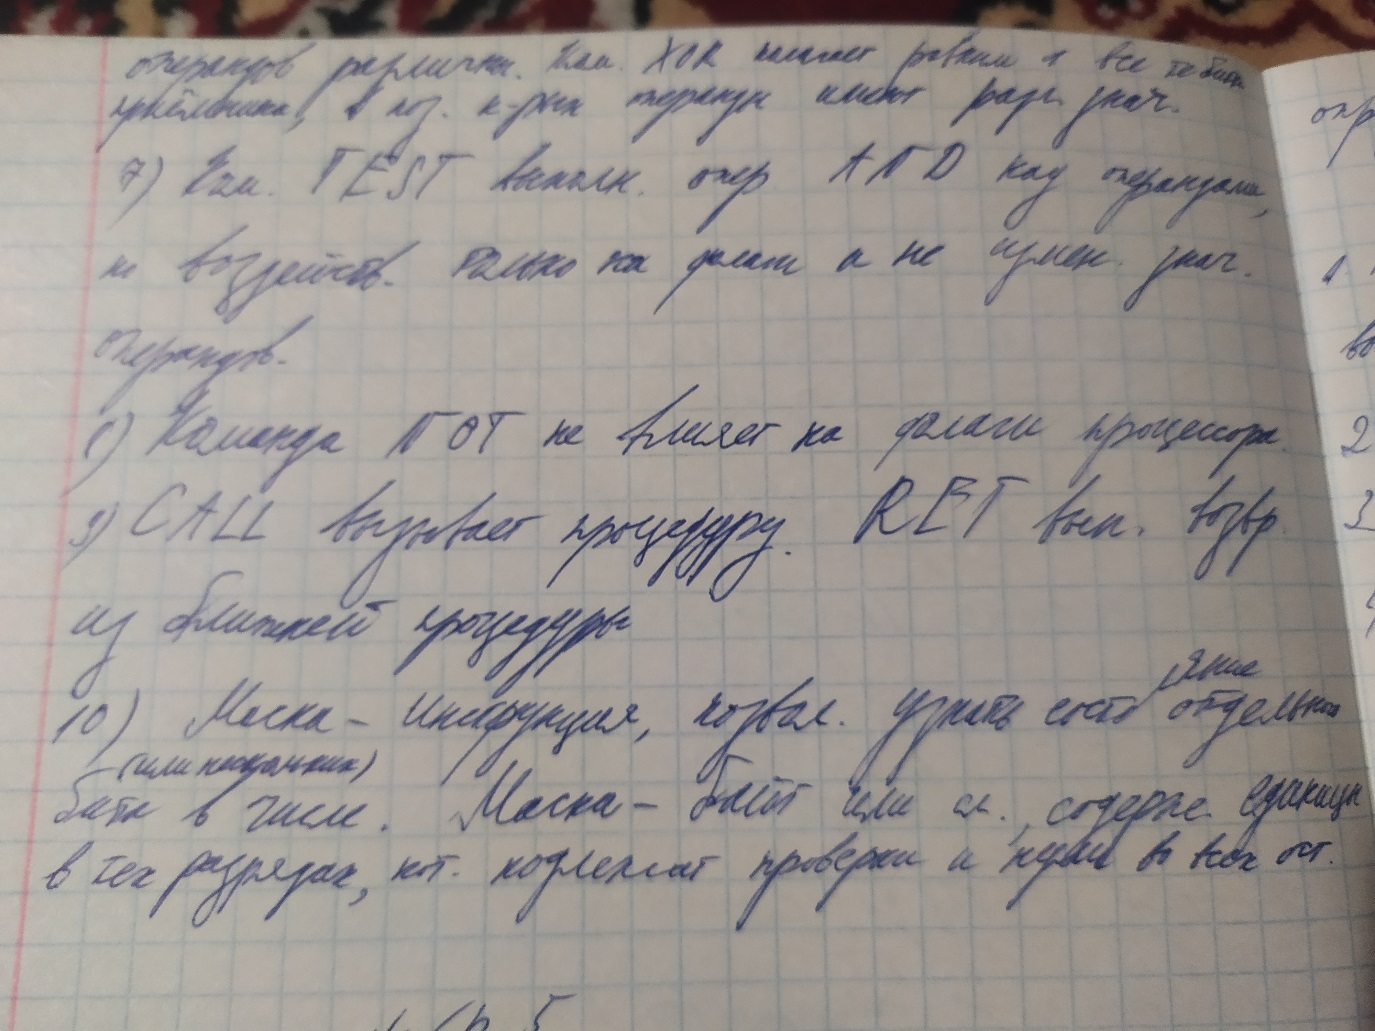 операндов различны. Ком. XOR полагает равным 1 все те биты
приёмника, в поз. к-рых операнды имеют разл. знач.
7) Ком. TEST выполн. опер. AND над операндами,
но воздейств. только на флаги и не измен. знач.
операндов.
8) Команда NOT не влияет на флаги процессора.
9) CALL вызывает процедуру. RET вып. возвр.
из ближней процедуры
10) Маска - инструкция, позвол. узнать состояние отдельных
(или нескольких)
бита в числе. Маска - байт или сл., содерж. единицы
в тех разрядах, кот. подлежат проверки и нули во всех ост.
опр
1.
во
2
3